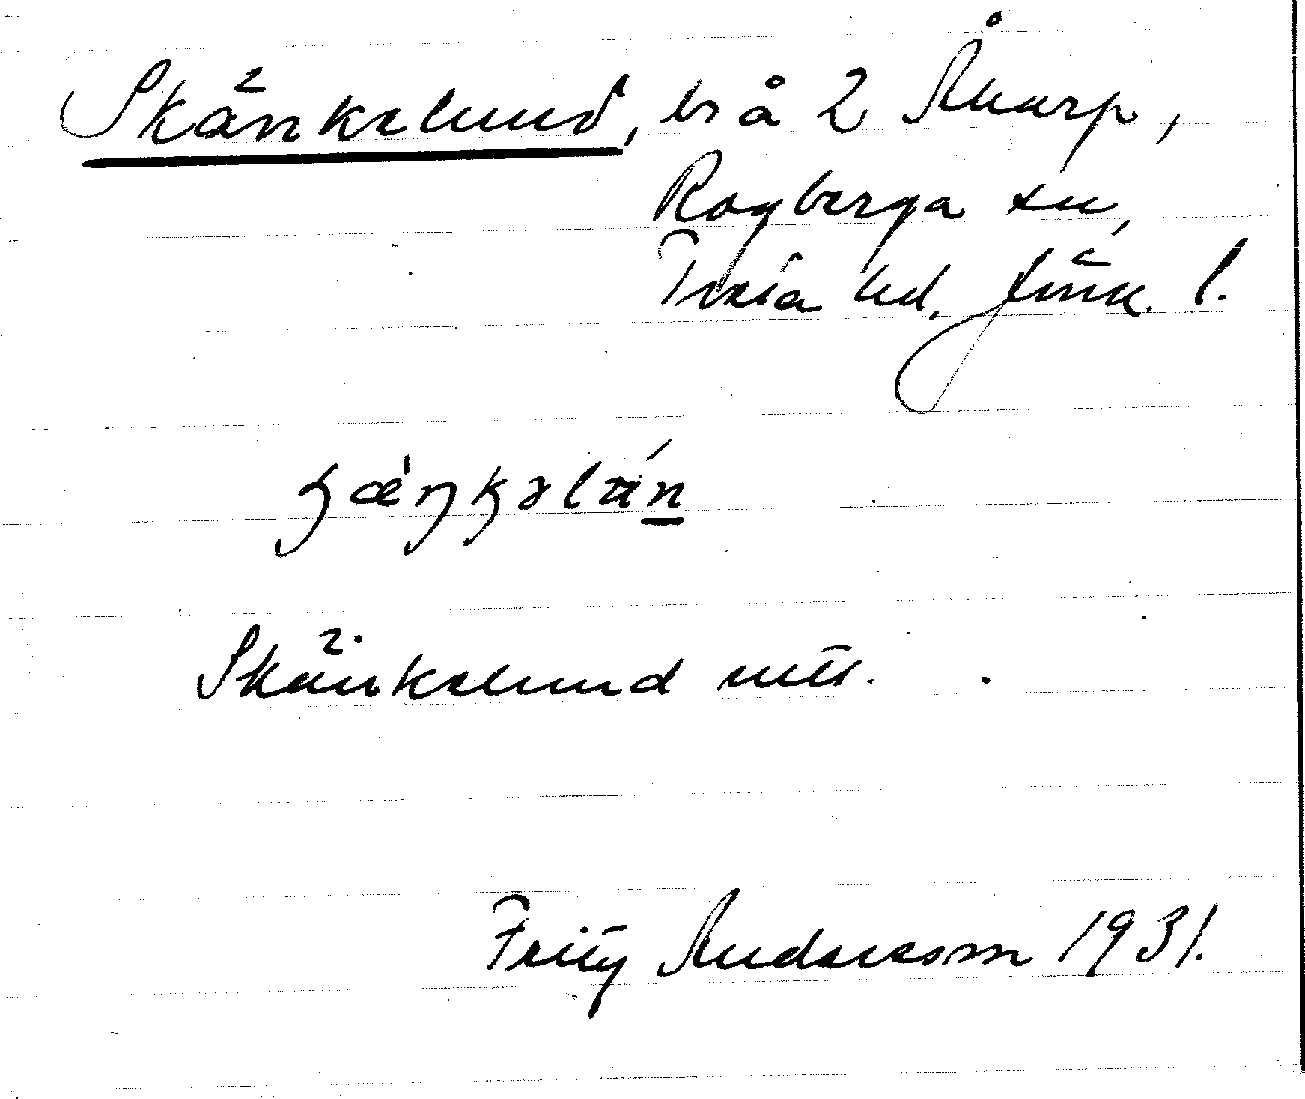 Skänkelund, br å 2 Åkarp,
Rogberga sn,
Tveta hd. Jönk. l.
Skänkelund utt.
Fritz Andersson 1931.